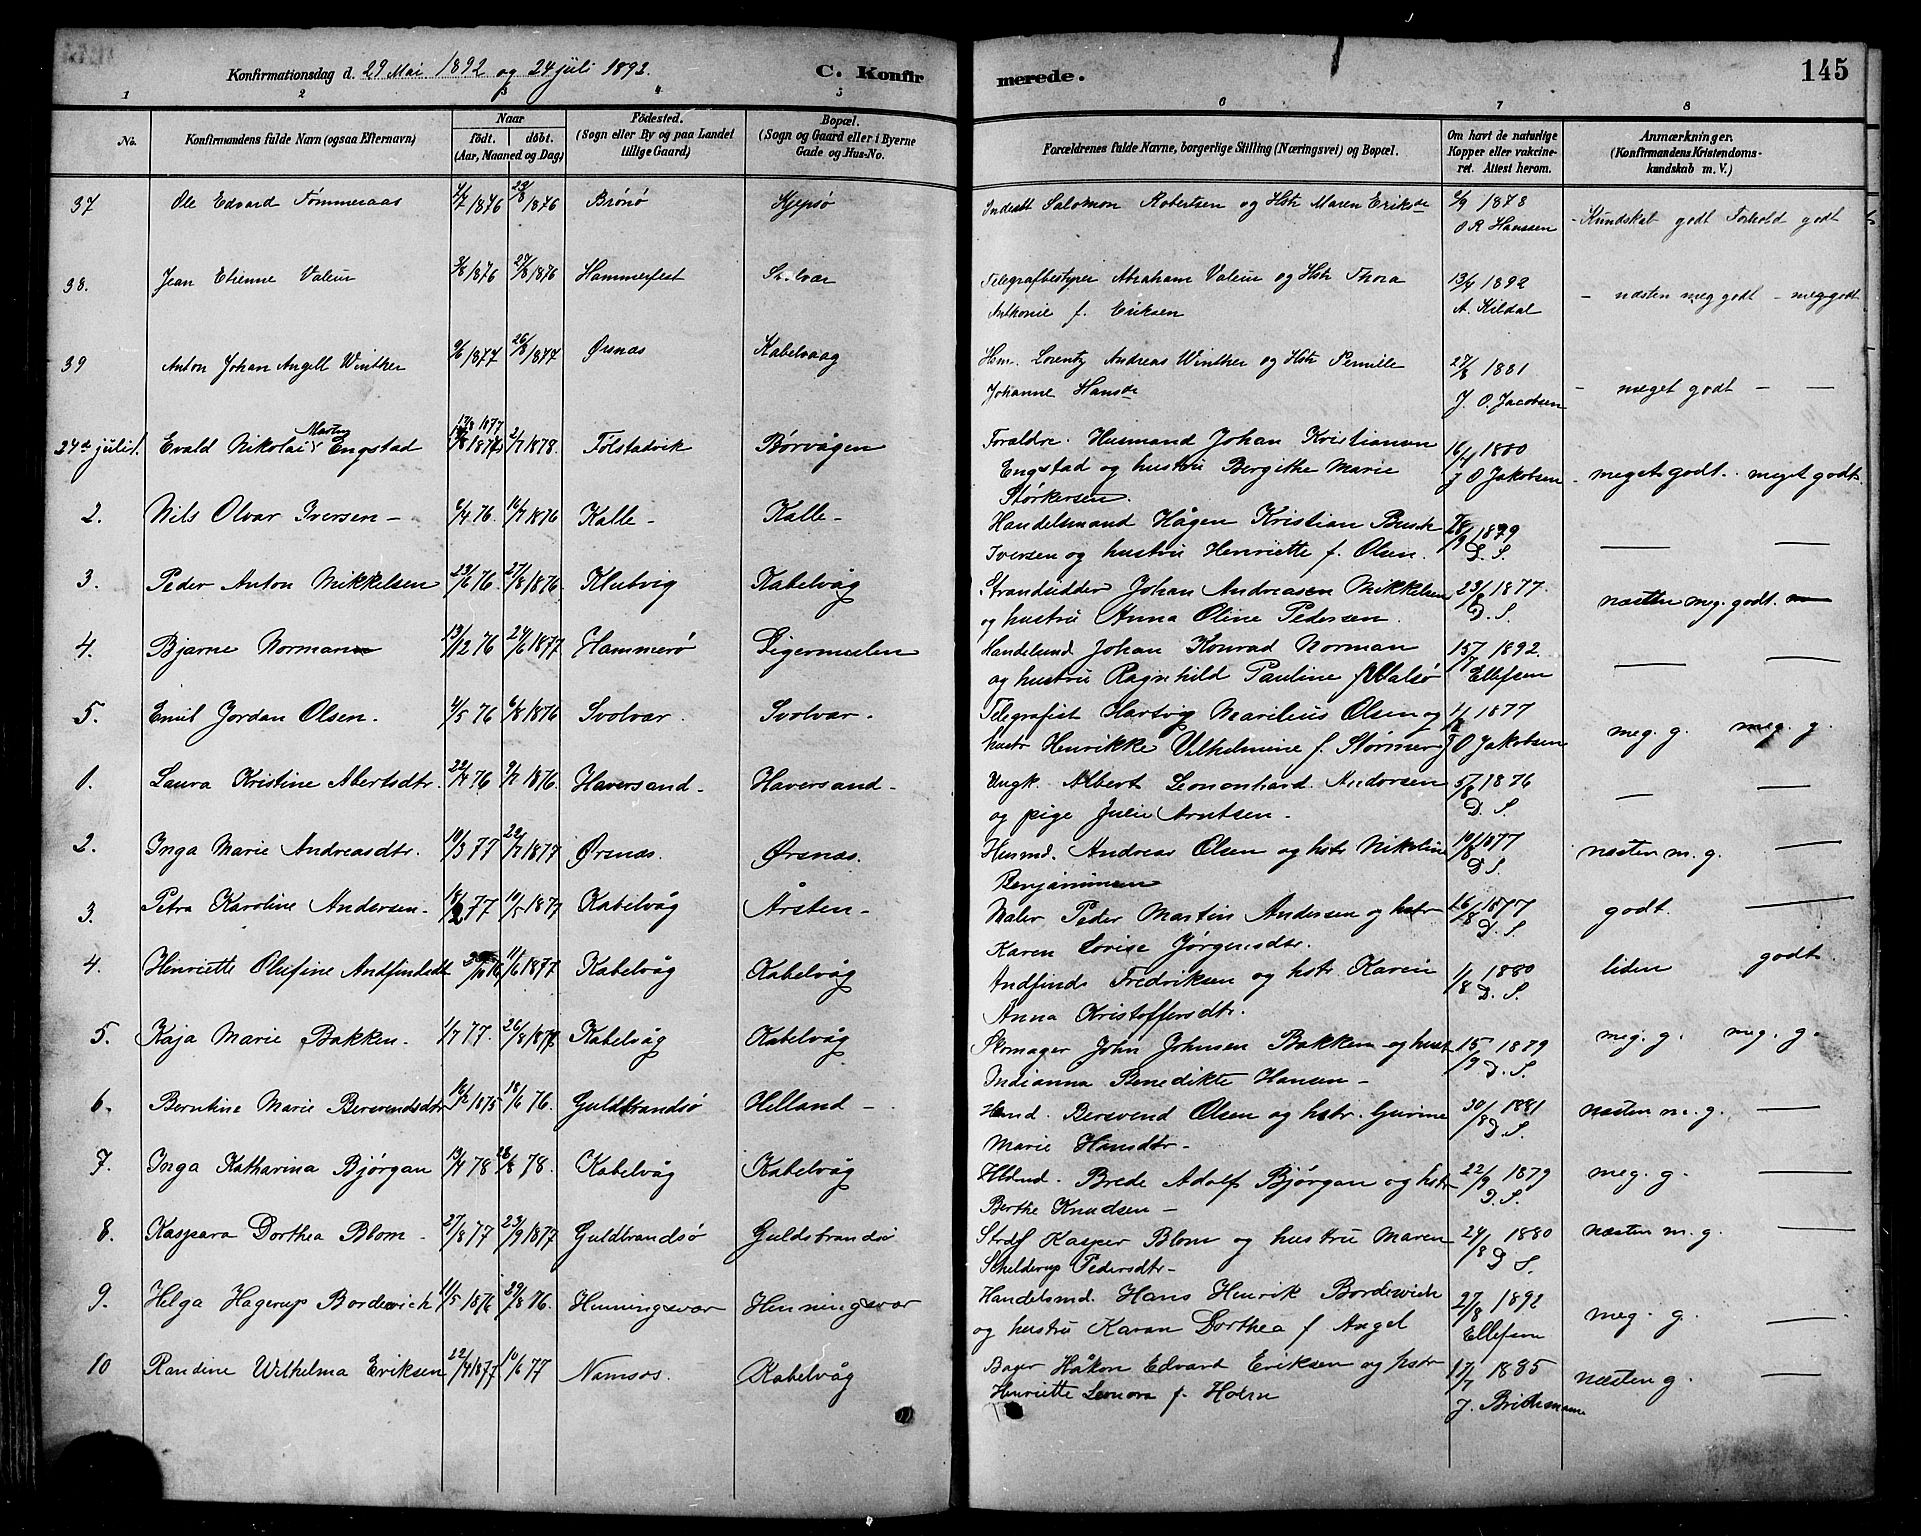 Konfirmationsdag d. 29 Mai 1892 og 24 juli 1892. C. Konfirmerede. 145
1 2 3 4 5 6 7 8
No. Konfirmandens fulde Navn (ogsaa Efternavn) Naar født. døbt. (Aar, Maaned og Dag) Fødested. (Sogn eller By og paa Landet tillige Gaard) Bopæl. (Sogn og Gaard eller i Byerne Gade og Hus-No. Forældrenes fulde Navne, borgerlige Stilling (Næringsvei) og Bopæl. Om havt de naturlige Kopper eller vakcineret. Attest herom. Anmærkninger. (Konfirmandens Kristendomskundskab m. V.)
37 Ole Edvard Tømmeraas 1876 29/8 1876 Brønø Salomon Robertsen og Hstr Maren Eriksdr 1878 - Kundskab godt Forhold godt
O R Hanssen
38. Jean Etienne Valeur 3/8 1876 27/8 1876 Hammerfest Telegrafbestyrer Abraham Valeur og Hstr Thora 13/4 1892 - næsten meg godt - meg godt
Antkonie f. Eriksen A. Kildal
39 Anton Johan Angell Winther 9/6 1877 26/8 1877 Ørsnæs Kabelvaag Hm. Lorentz Andreas Winther og Hstr Pernille 27/8 1881 - meget godt - —
Johanne Hansdr J. O. Jacobsen
24de juli 1. Evald Nikolai Martin Engstad 2/7 1878. Følstadvik Børvågen Foraldre. Husmand Johan Kristiansen 16/4 1880 meget godt. meget godt.
Engstad og hustru Bergithe Marie J O Jakobsen
Størkersen.
2. Nils Olvar Iversen - 6/4 76 16/7 1876 Kalle - Kalle - Handelsmand Hågen Kristian Busch 28/9 1879 — —
Iversen og hustru Henriette f. Olsen. D. S.
3. Peder Anton Mikkelsen 23/6 76 27/8 1876. Klutvig Kabelvåg Strandsidder Johan Andreasen Mikkelsen 23/8 1877. næsten meg. godt.
og hustru Anna Oline Pedersen. D. S.
4. Bjarne Norman 13/12 76 24/6 1877 Hammerø Digermulen Handelsmd Johan Konrad Norman 15/7 1892. — —
og hustru Ragnhild Pauline f Valsø Ellefsen
5. Emil Jordan Olsen. 4/5 76 6/8 1876 Svolvær. Svolvær. Telegrafist Hartvig Marilius Olsen og 1877 meg. g. meg. g.
hustr Henrikke Vilhelmine f. Størmer J O Jakobsen
1. Laura Kristine Albertsdtr. 22/4 76 9/7 1876. Haversand - Haversand - Ungk. Albert Leononhard Andersen 5/8 1876 — —
og pige Julie Arntsen - D. S.
2. Inga Marie Andreasdtr. 10/3 77 22/7 1877 Ørsnæs. Ørsnæs. Husmd. Andreas Olsen og hstr Nikoline 19/8 1877 næsten m. g. —
Benjaminsen D. S.
3. Petra Karoline Andersen - 18/2 77 10/5 1877 Kabelvåg Årsten - Maler Peder Martin Andersen og hstr 26/8 1877 godt. —
Karen Lovise Jørgensdtr. D. S.
4. Henriette Olufine Andfindsdtr 11/6 1877 Kabelvåg Kabelvåg Andfind Fredriksen og hstr Karen 1/8 1880 liden godt
Anna Kristoffersdtr. D. S.
5. Kaja Marie Bakken - 1/7 77. 26/8 1877. Kabelvåg Kabelvåg Skomager John Johnsen Bakken og hust 15/9 1879 meg. g. meg. g.
Indianna Benedikte Hansen - D. S.
6. Berntine Marie Berevendsdtr 1875 18/6 76. Guldbrandsø Helland - Berevend Olsen og hstr. Gurine 30/8 1881 næsten m. g. —
Marie Hansdtr - D S.
7. Inga Katharina Bjørgan 19/4 78 26/8 78. Kabelvåg Kabelvåg Brede Adolf Bjørgan og hstr 22/9 1879 meg. g. —
Berthe Knudsen - D. S.
8. Kaspara Dorthea Blom - 27/8 77 23/9 1877 Guldbrandsø Guldsbrandsø Kasper Blom og hustru Maren 24/8 1880 næsten m. g. —
Schelderup Pedersdtr - D S.
9. Helga Hagerup Bordewich 11/5 1876 29/8 76. Henningsvær Henningsvær Handelsmd. Hans Henrik Bordewich 27/8 1892 meg. g. —
og hustru Karen Dorthea f Angel Ellefsen
10 Randine Wilhelma Eriksen 22/4 1877. 10/6 77 Namsos. Kabelvåg Bager Håkon Edvard Eriksen og hstr 17/7 1885 næsten g. —
Henriette Leonora f. Holm